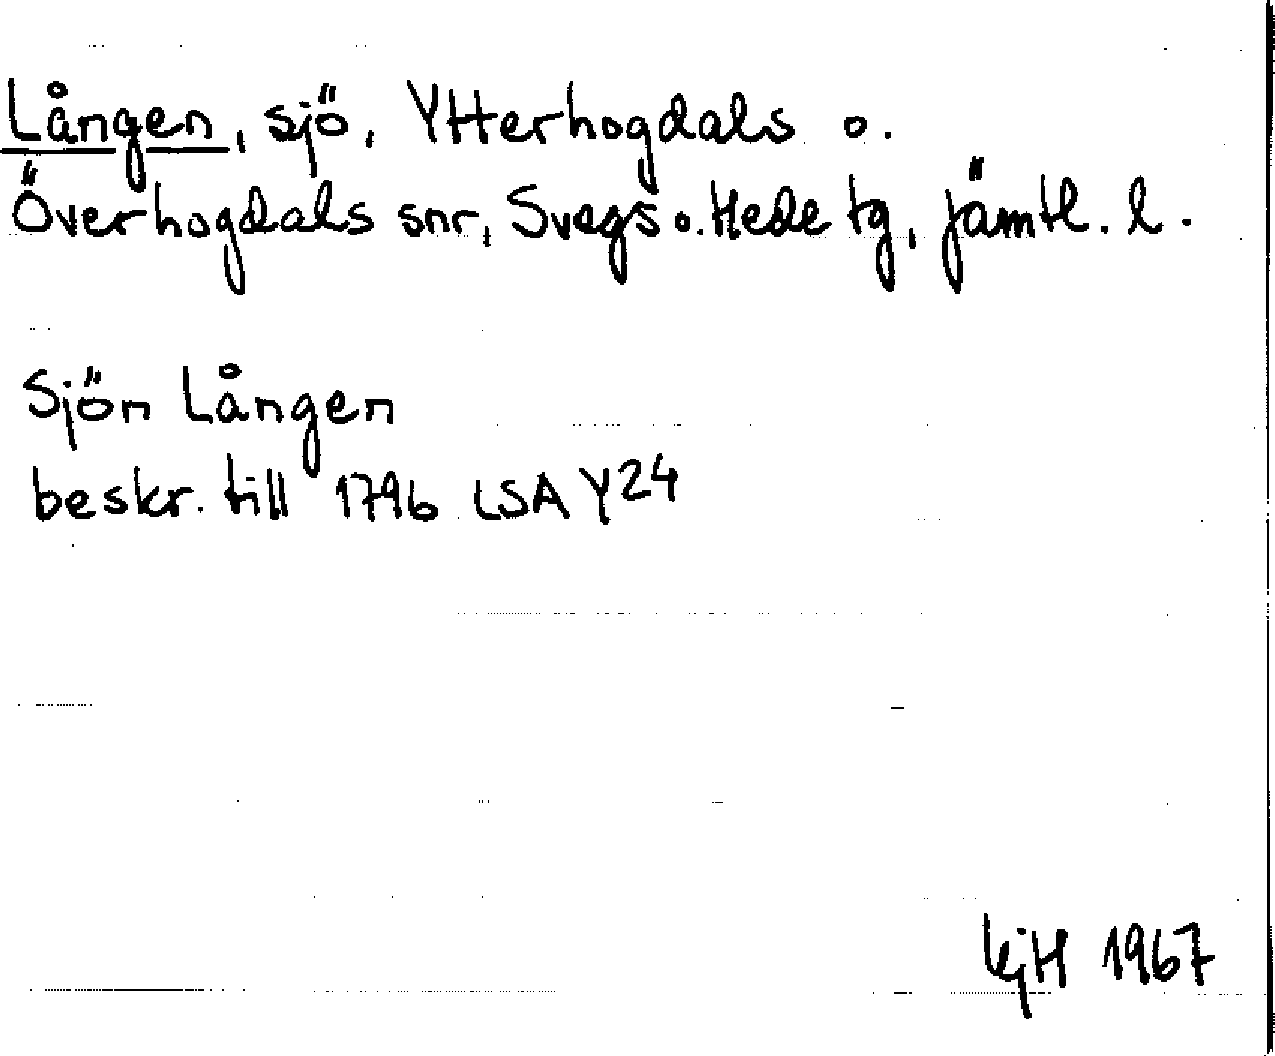 Lången, sjö, Ytterhogdals o.
Överhogdals snr, Svegs o. Hede tg, Jämtl. l.
Sjön Lången
beskr. till 1796 LSA Y24
KjH 1967